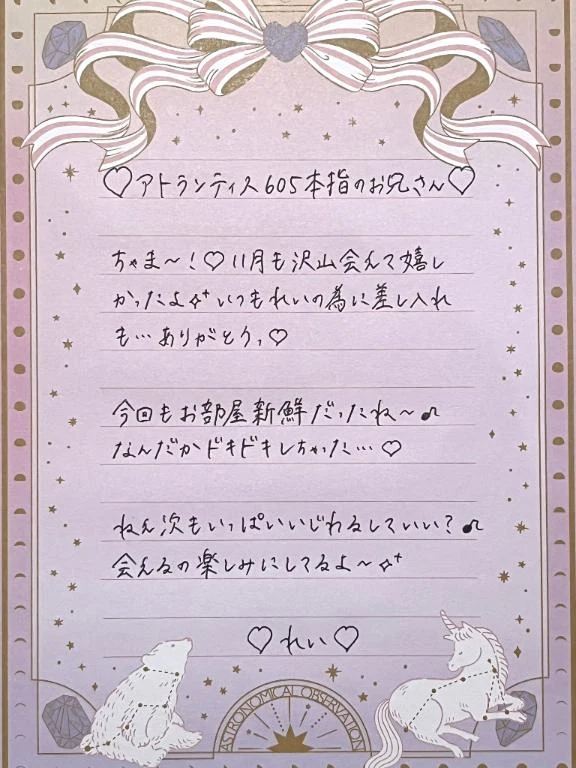 ♡アトランティス605本指のお兄さん♡
ちゃま〜！♡11月も沢山会えて嬉し
かったよ✧⁺いつもれいの為に差し入れ
も…ありがとうっ♡
今回もお部屋新鮮だったね〜♫
なんだかドキドキしちゃった…♡
ねえ次もいっぱいいじわるしていい？♫
会えるの楽しみにしてるよ〜✧⁺
♡れい♡
ASTRONOMICAL OBSERVATION